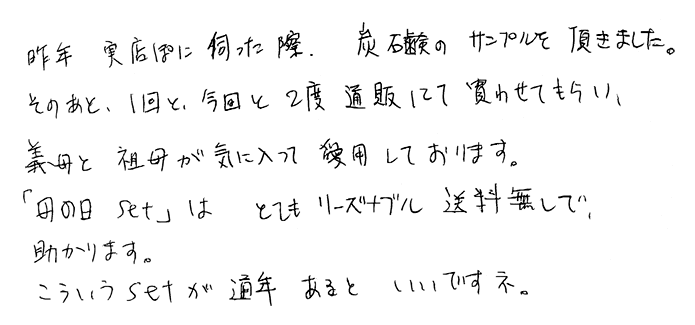 昨年 実店ぽに 伺った際、 炭石鹸の サンプルを 頂きました。
そのあと、1回と、今回と 2度 通販にて 買わせてもらい、
義母と 祖母が 気に入って 愛用 しております。
「母の日 set」は とても リーズナブル 送料無しで、
助かります。
こういう setが 通年 あると いいですネ。